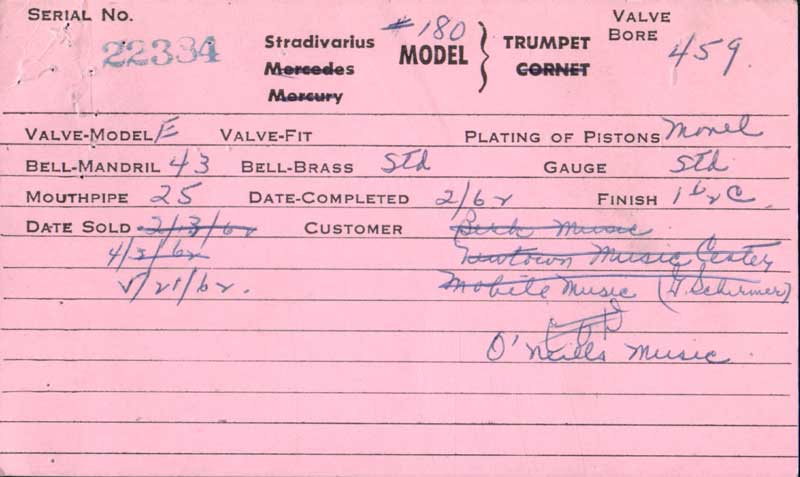 SERIAL NO. 22334 Stradivarius #180 MODEL TRUMPET VALVE BORE 459
Mercedes CORNET
Mercury
VALVE-MODEL E VALVE-FIT PLATING OF PISTONS Monel
BELL-MANDRIL 43 BELL-BRASS Std GAUGE Std
MOUTHPIPE 25 DATE-COMPLETED 2/62 FINISH
DATE SOLD 2/13/62 CUSTOMER Music
4/3/62 Newtown Music Center
Mobile Music (G Schirmer)
O'Neills Music